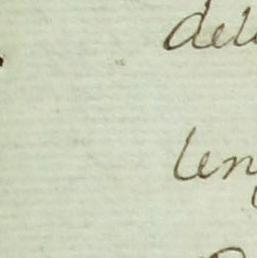 del
len